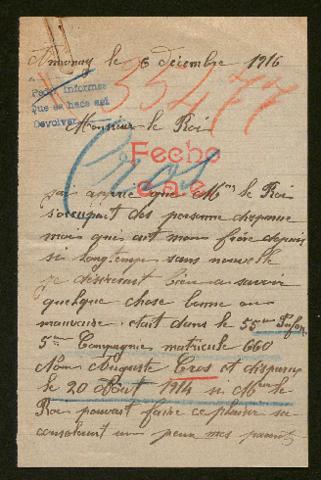 Annonay le 6 décembre 1916
35477
Pedir Informes
Que se hace así
Devolver
Monsieur le Roi
Cros
Fecho
jai appric que Mr le Roi
s'occupait des personne disparue
mais qui ait mon frère depuis
si longtemps sans nouvelle
je désirerait bien a savoir
quelque chose bonne ou
mauvaise était dans le 55me Infan
5me Compagnie matricule 660
Nom Auguste Cros et disparu
le 20 Août 1914 si Mr le
Roi pouvait faire ce plaisir sa
consolerait un peux mes parents